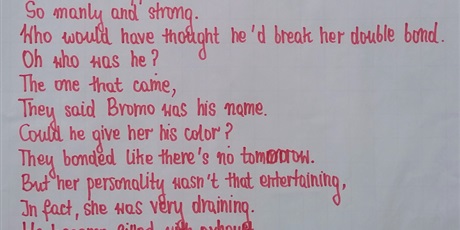 So manly and strong.
Who would have thought he'd break her double bond.
Oh who was he?
The one that came,
They said Bromo was his name.
Could he give her his color?
They bonded like there's no tomorrow.
But her personality wasn't that entertaining,
In fact, she was very draining.